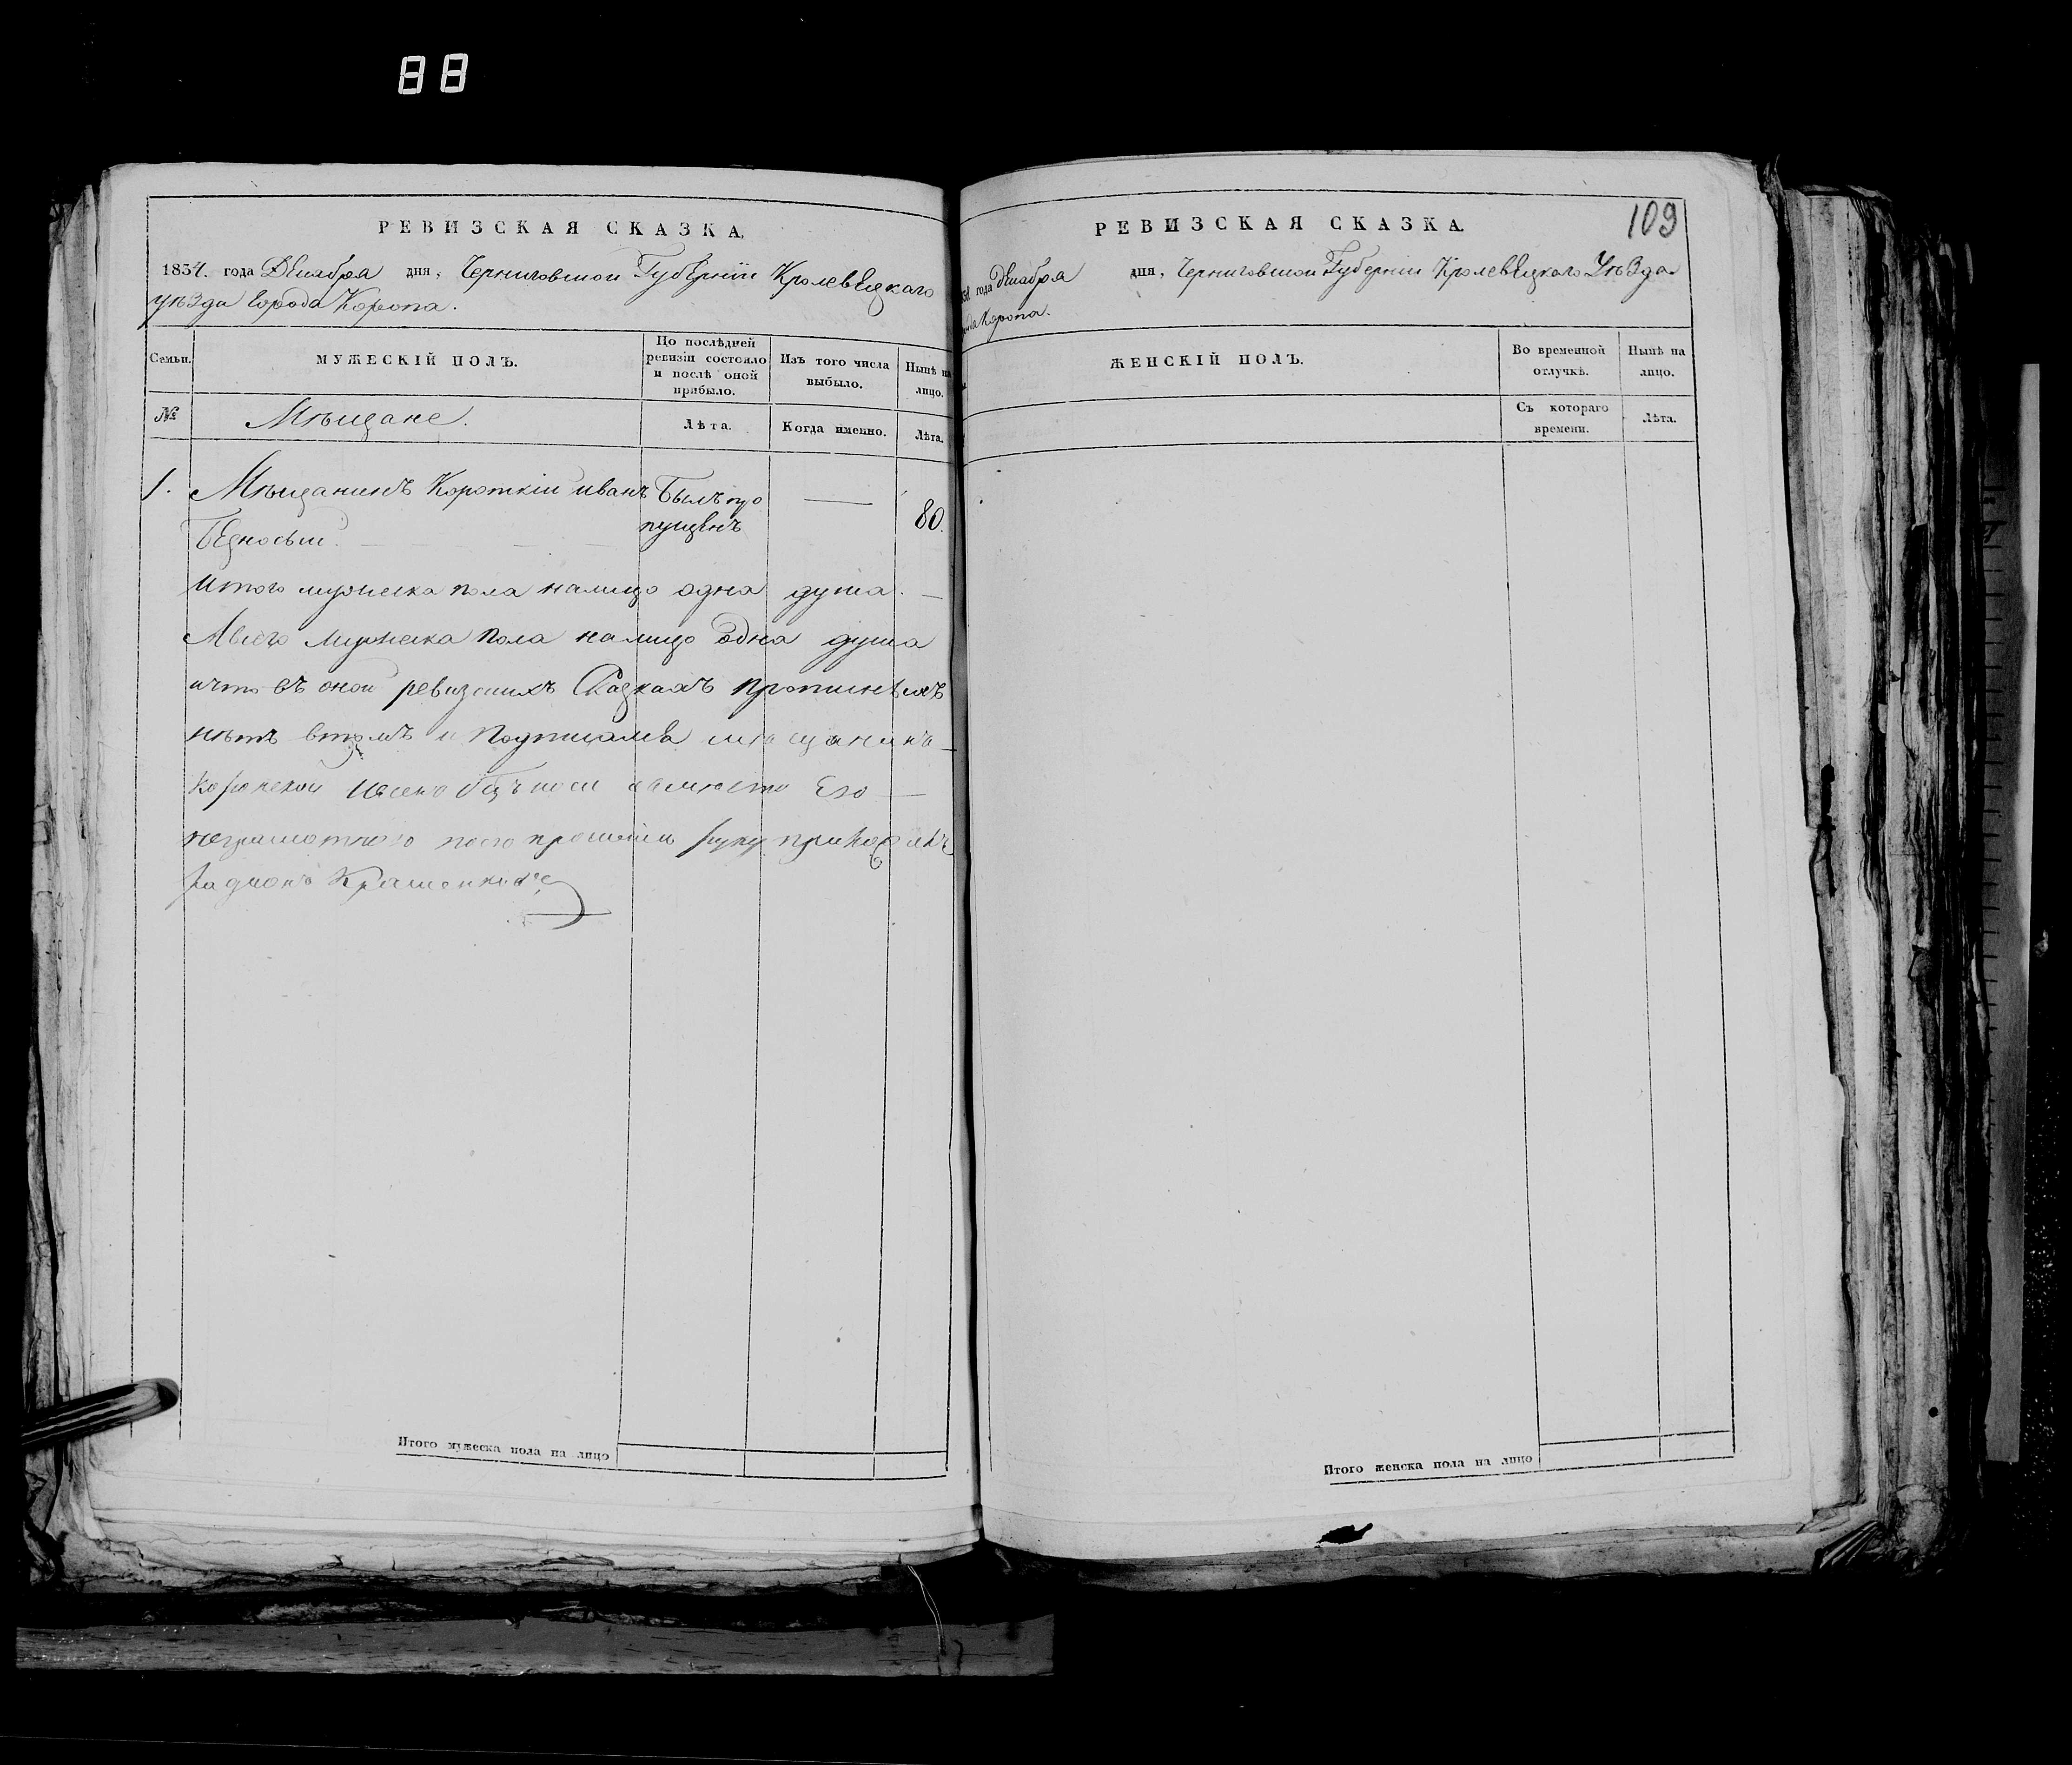 88
РЕВИЗСКАЯ СКАЗКА.
1834. года Декабря дня, Черниговской Губерніи Кролевецкаго
уѣзда города Коропа.
Семьи.
МУЖЕСКІЙ ПОЛЪ.
По послѣдней ревизіи состояло и послѣ оной прибыло.
Изъ того числа выбыло.
Нынѣ на лицо.
№
Мѣщане.
Лѣта.
Когда именно.
Лѣта.
1. Мѣщанинъ Короткій иванъ Былъ про — 80.
пущенъ
Итого мужеска пола налицо одна душа. —
Авсего мужеска пола налицо одна душа
ичто въ оной ревизскихъ Сказкахъ
нѣтъ втомъ и мещанинъ
Его
неграмотного поего прошенію руку
радионъ
Итого мужеска пола на лицо
РЕВИЗСКАЯ СКАЗКА.
109
года Декабря дня, Черниговской Губерніи Кролевецкаго Уѣзда
Коропа.
ЖЕНСКІЙ ПОЛЪ.
Во временной отлучкѣ.
Нынѣ на лицо.
Съ котораго времени.
Лѣта.
Итого женска пола на лицо